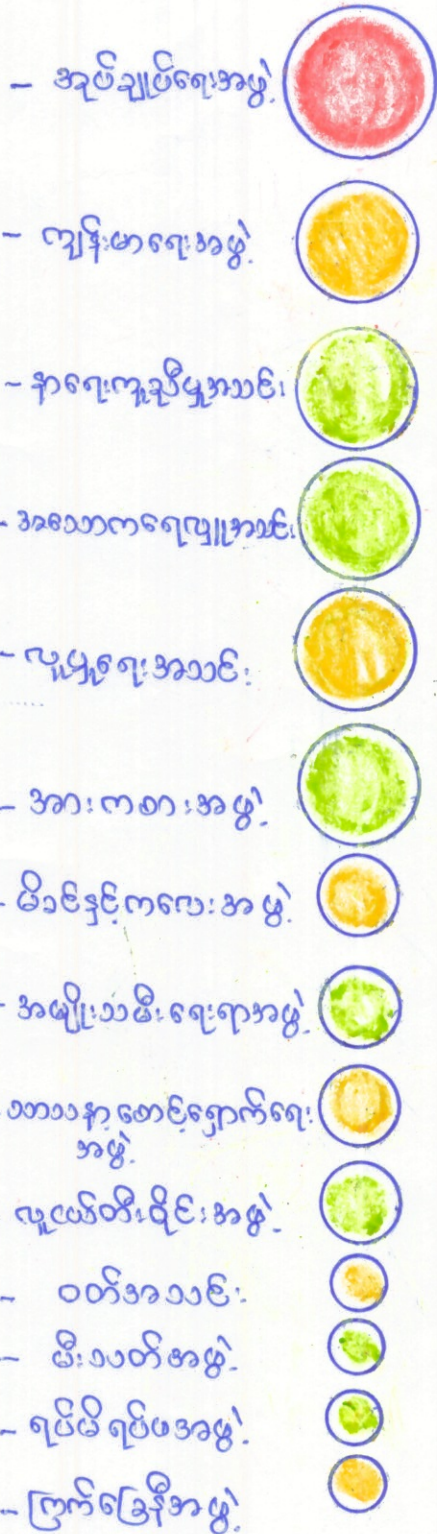 - အုပ်ချုပ်ရေးအဖွဲ့
- ကျန်းမာရေးအဖွဲ့
- နာရေးကူညီမှုအသင်း
- အသောကရေလှူအသင်း
- လူမှုရေးအသင်း
- အားကစားအဖွဲ့
- မိခင်နှင့်ကလေးအဖွဲ့
- အမျိုးသမီးရေးရာအဖွဲ့
သာသနာ့စောင့်ရှောက်ရေး
အဖွဲ့
လူငယ်တီးဝိုင်းအဖွဲ့
- ဝတ်အသင်း
- မီးသတ်အဖွဲ့
- ရပ်မိရပ်ဖအဖွဲ့
- ကြက်ခြေနီအဖွဲ့